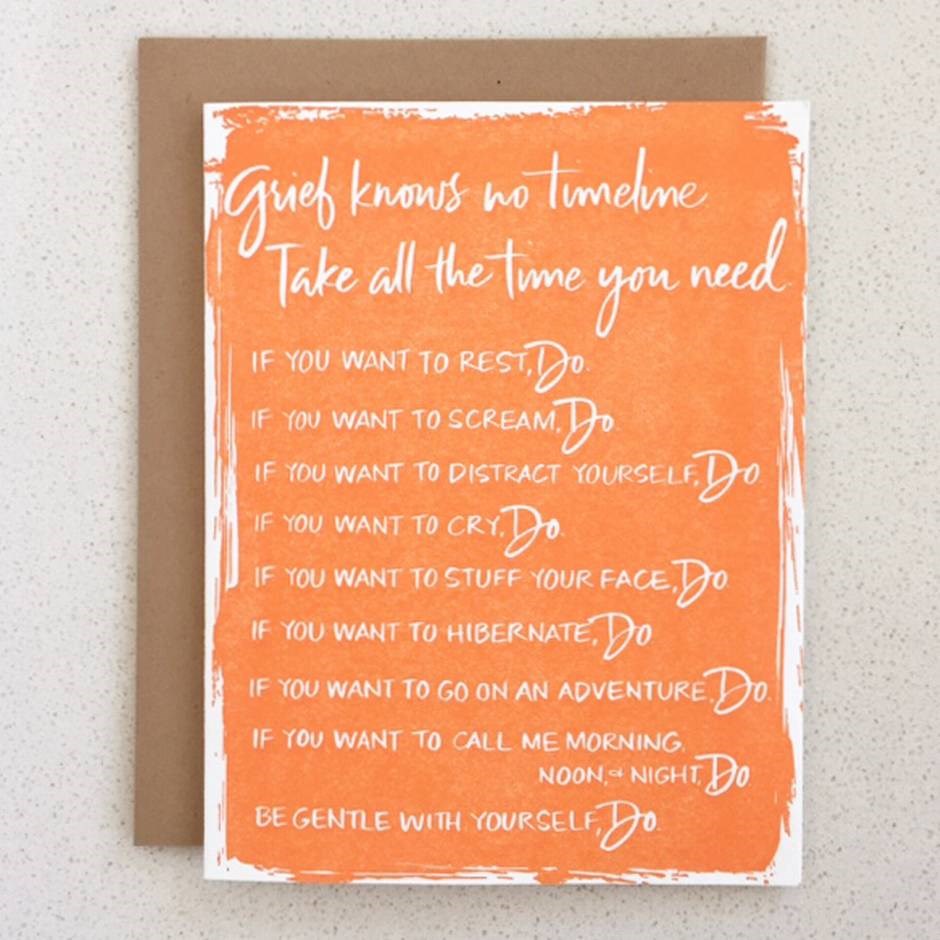 Grief knows no timeline
Take all the time you need.
IF YOU WANT TO REST, Do.
IF YOU WANT TO SCREAM, Do.
IF YOU WANT TO DISTRACT YOURSELF, Do.
IF YOU WANT TO CRY, Do.
IF YOU WANT TO STUFF YOUR FACE, Do
IF YOU WANT TO HIBERNATE, Do
IF YOU WANT TO GO ON AN ADVENTURE, Do.
IF YOU WANT TO CALL ME MORNING,
NOON, & NIGHT, Do
BE GENTLE WITH YOURSELF, Do.